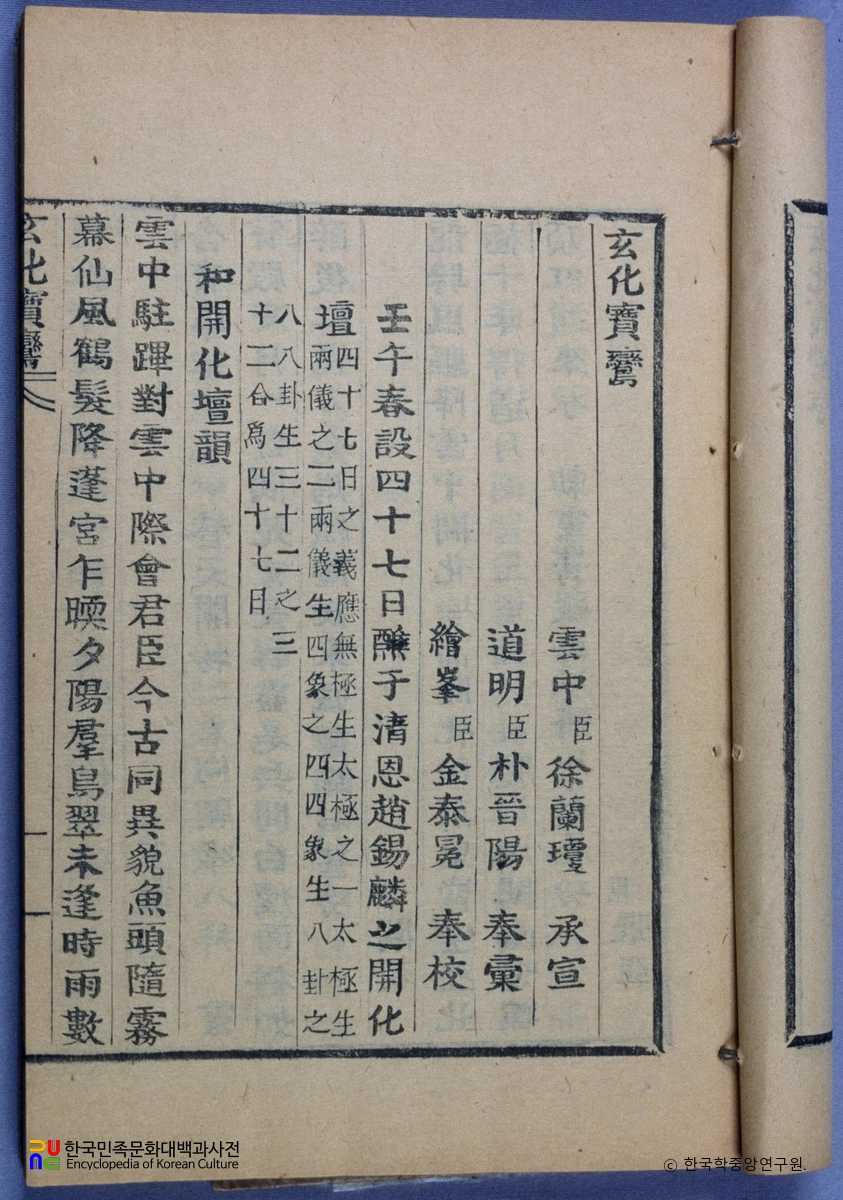 玄化寶鸞
雲中臣徐蘭瓊 承宣
道明臣朴晉陽 奉彙
繪峯臣金泰冕 奉校
壬午春設四十七日醮于清恩趙錫麟之開化
壇四十七日之義應無極生太極之一太極生
兩儀之二兩儀生四象之四四象生八卦之
八八卦生三十二之三
十二合爲四十七日
和開化壇韻
雲中駐蹕對雲中際會君臣今古同異貌魚頭隨霧
幕仙風鶴髮降蓬宮乍暎夕陽羣鳥翠未逢時雨數
玄化寶鸞
한국민족문화대백과사전
Encyclopedia of Korean Culture
© 한국학중앙연구원